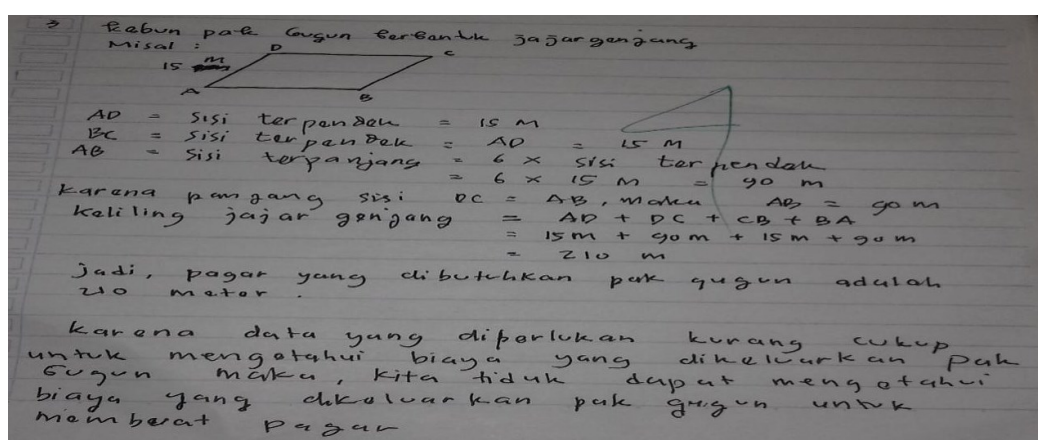 3 Kebun pak Gugun berbentuk jajargenjang
Misal :
D C
15 M
A B
AD = sisi terpendek = 15 M
BC = sisi terpendek = AD = 15 M
AB = sisi terpanjang = 6 × sisi terpendek
= 6 × 15 M = 90 m
Karena panjang sisi DC = AB, maka AB = 90 m
Keliling jajar genjang = AD + DC + CB + BA
= 15 m + 90 m + 15 m + 90 m
= 210 m
Jadi, pagar yang dibutuhkan pak gugun adalah
210 meter.
Karena data yang diperlukan kurang cukup
untuk mengetahui biaya yang dikeluarkan pak
Gugun maka, kita tidak dapat mengetahui
biaya yang dikeluarkan pak gugun untuk
memberat pagar